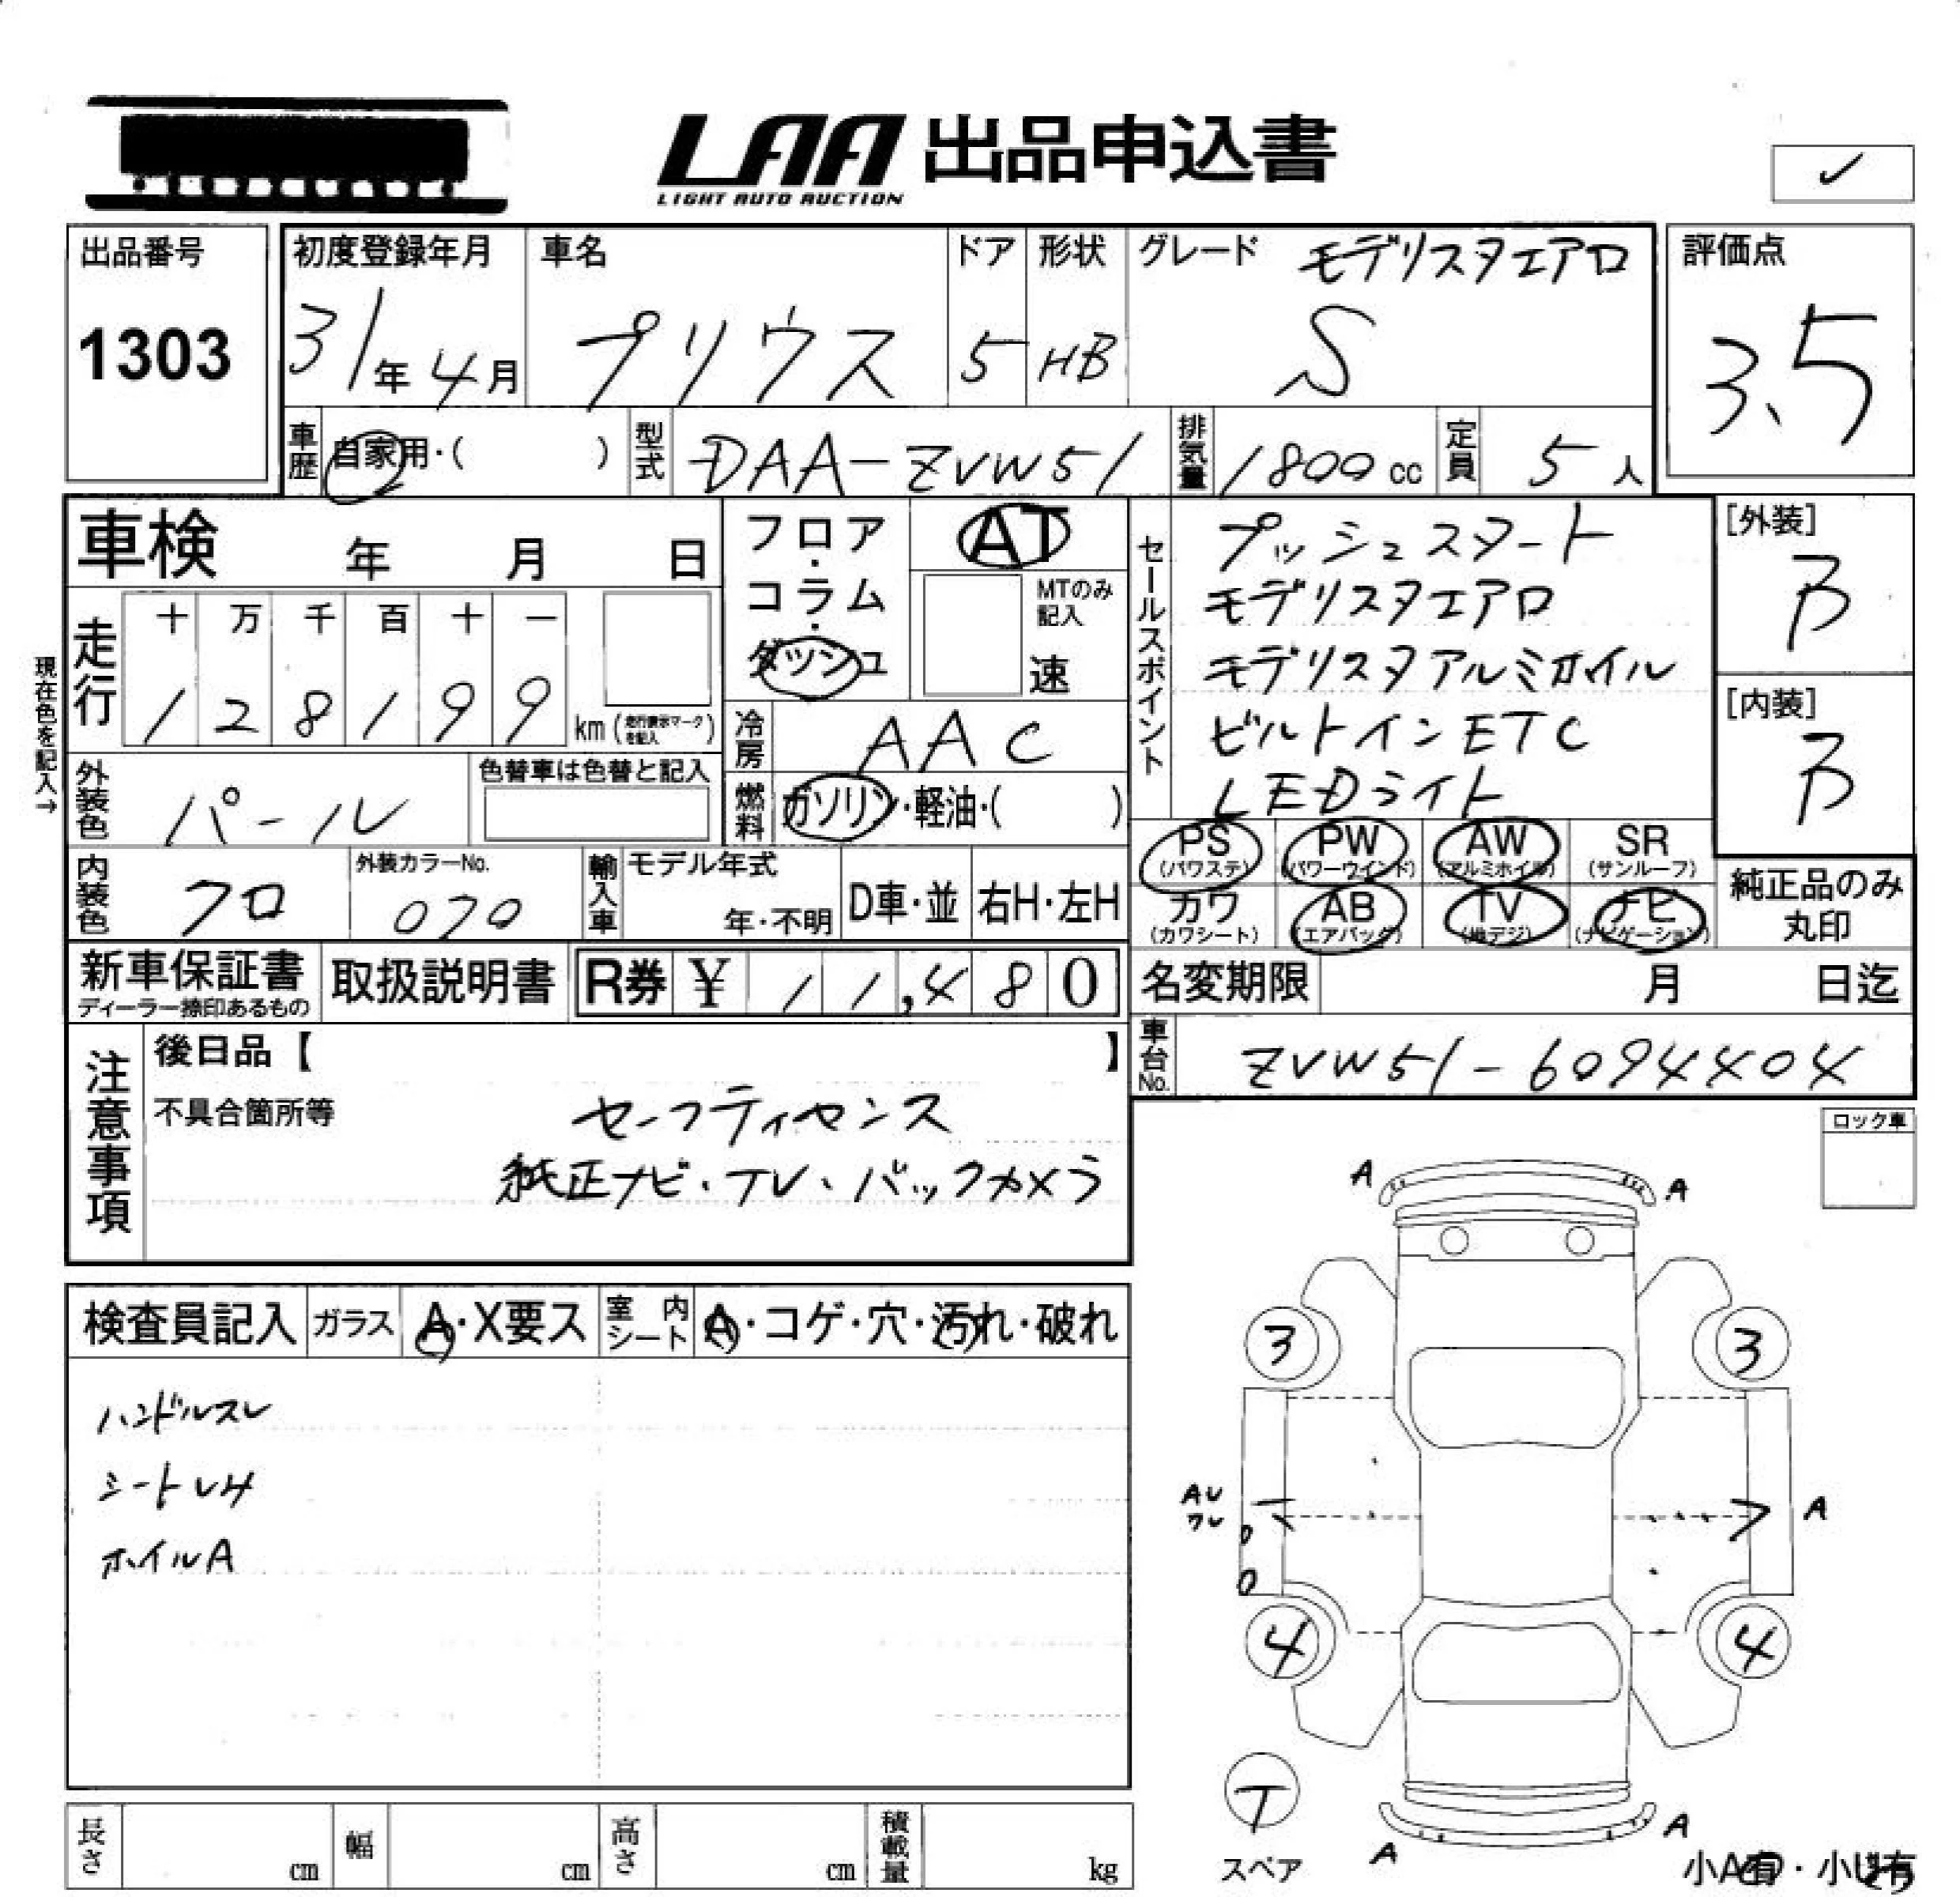 LAA 出品申込書
LIGHT AUTO AUCTION
出品番号
1303
初度登録年月
31年4月
車名
プリウス
ドア
5
形状
HB
グレード
モデリスタエアロ
S
評価点
3.5
車歴
自家用・( )
型式
DAA-ZVW51
排気量
1800cc
定員
5人
車検 年 月 日
フロア・コラム・ダッシュ
AT
MTのみ記入
速
セールスポイント
プッシュスタート
モデリスタエアロ
モデリスタアルミホイル
ビルトインETC
LEDライト
[外装]
B
[内装]
B
現在色を記入→
走行
十 万 千 百 十 一
1 2 8 1 9 9
km (走行表示マークを記入)
冷房
AAC
燃料
ガソリン・軽油・( )
外装色
パール
色替車は色替と記入
PS
(パワステ)
PW
(パワーウインド)
AW
(アルミホイル)
SR
(サンルーフ)
カワ
(カワシート)
AB
(エアバッグ)
TV
(地デジ)
ナビ
(ナビゲーション)
純正品のみ
丸印
内装色
クロ
外装カラーNo.
070
輸入車
モデル年式
年・不明
D車・並
右H・左H
新車保証書
ディーラー捺印あるもの
取扱説明書
R券 ¥ 11,480
名変期限 月 日迄
車台No.
ZVW51-6094404
注意事項
後日品【 】
不具合箇所等
セーフティセンス
純正ナビ・TV・バックカメラ
ロック車
検査員記入
ガラス
A・X要ス
室内シート
A・コゲ・穴・汚れ・破れ
ハンドルスレ
シートヨレ
ホイルA
A A
3 3
AU
A
4 4
T
スペア
A A
小A有・小U有
長さ cm
幅 cm
高さ cm
積載量 kg